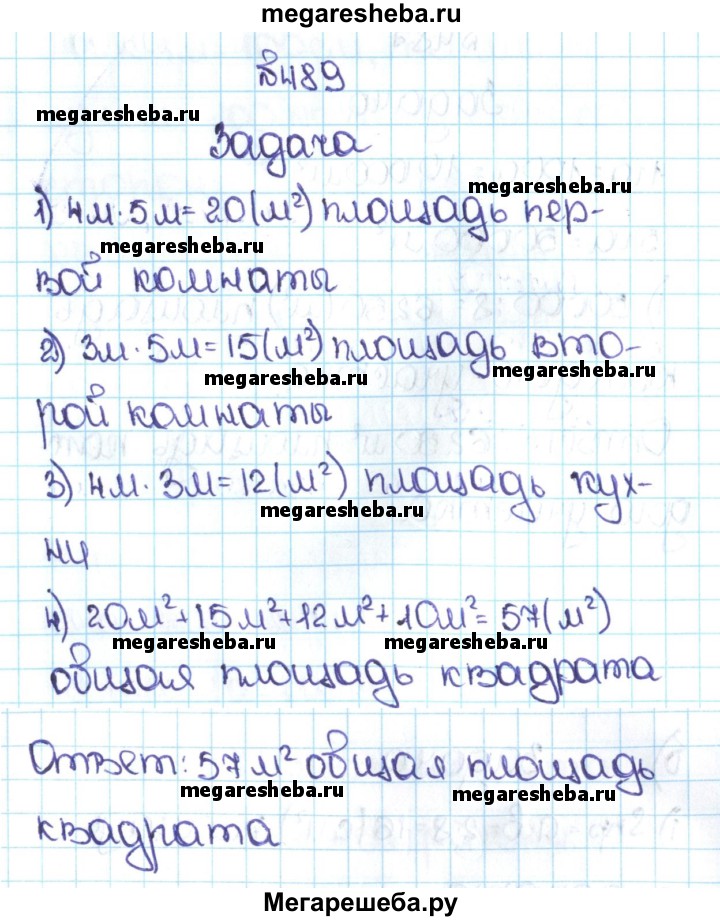 megaresheba.ru
№489
megaresheba.ru
Задача
megaresheba.ru
1) 4м·5м=20(м²) площадь пер-
megaresheba.ru
вой комнаты
2) 3м·5м=15(м²) площадь вто-
megaresheba.ru megaresheba.ru
рой комнаты
3) 4м·3м=12(м²) площадь кух-
megaresheba.ru
ни
4) 20м²+15м²+12м²+10м²=57(м²)
megaresheba.ru megaresheba.ru
общая площадь квадрата
Ответ: 57м² общая площадь
megaresheba.ru megaresheba.ru
квадрата
Мегарешеба.ру